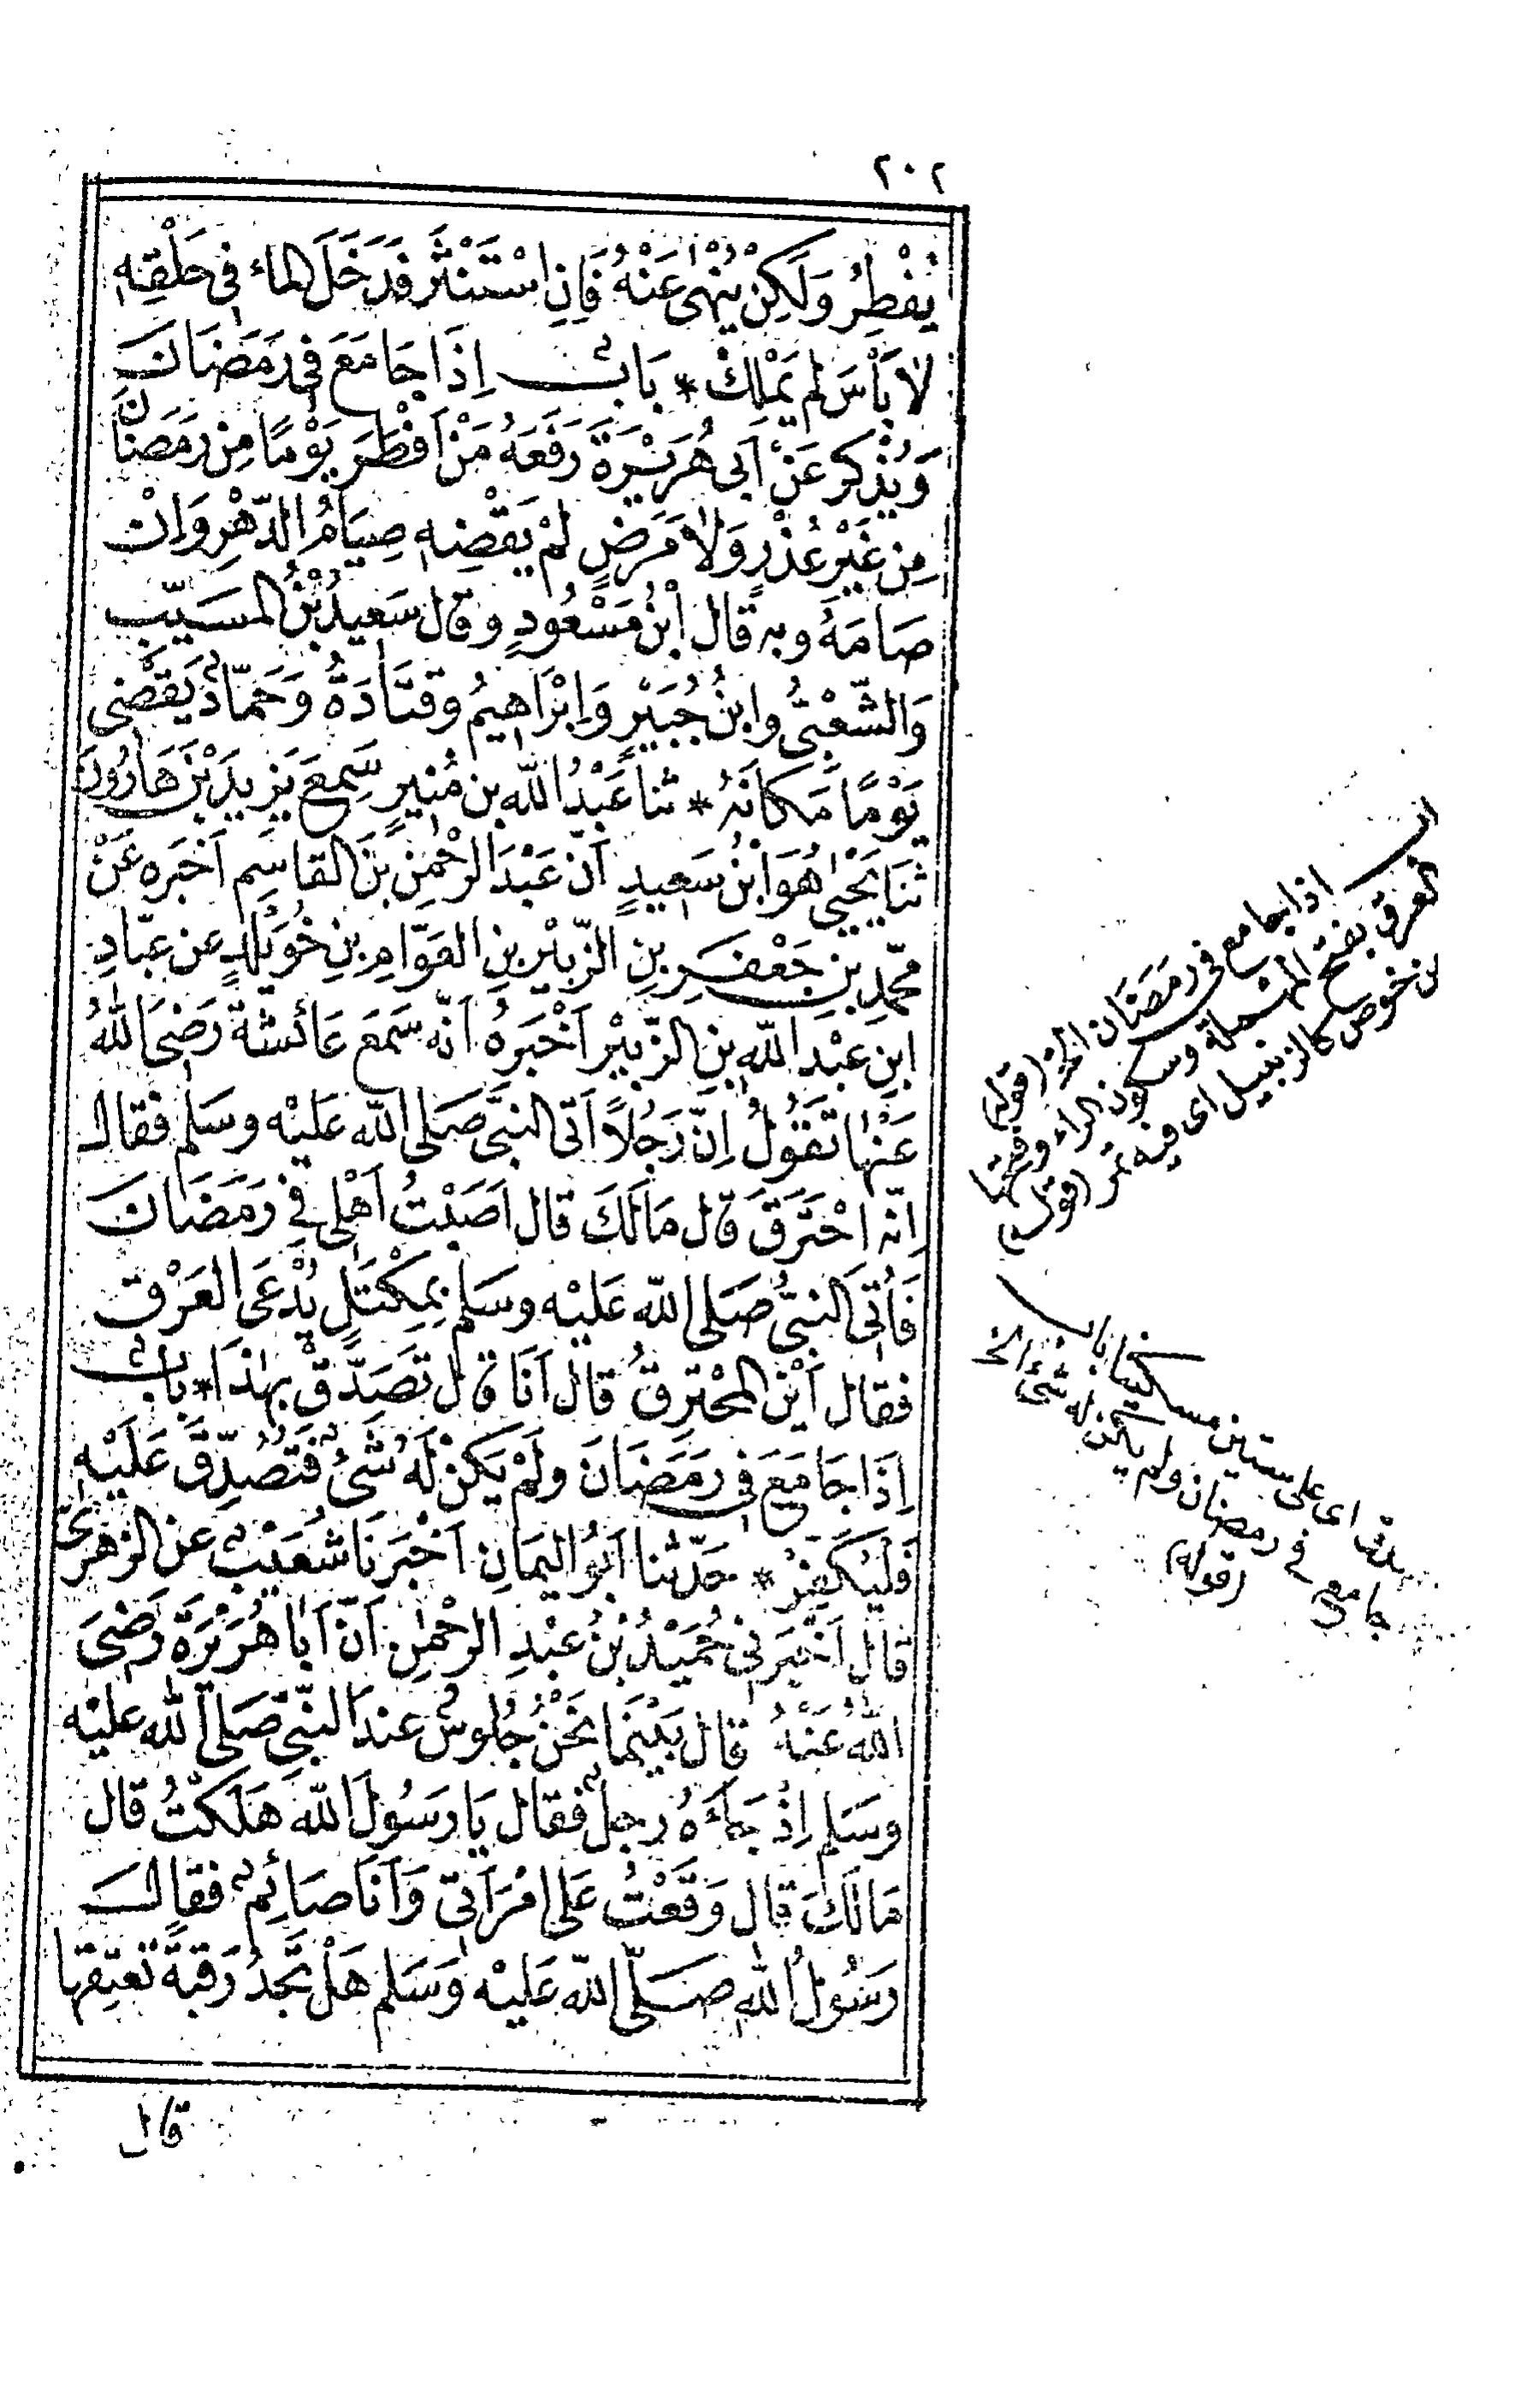 ٢٠٢
يُفْطِرُ وَلَكِنْ يُنْهٰى عَنْهُ فَاِنِ اسْتَنْثَرَ فَدَخَلَ الماء فى حَلْقِهِ
لَا بَأْسَ لم يَمْلِكْ * بَابٌ اِذَا جَامَعَ فى رَمَضَانَ
وَيُذْكر عَنْ اَبى هُرَيْرَةَ رَفَعَهُ مَنْ اَفْطَرَ يَوْمًا مِنْ رَمَضَانَ
مِن غَيْرِ عُذْرٍ وَلَا مَرَضٍ لَمْ يَقْضِهِ صِيَامُ الدّهْرِ وَاِنْ
صَامَهُ وبهِ قَال ابْنُ مَسْعُودٍ وقال سَعيدُ بْنُ المسَيّبِ
وَالشّعْبىُّ وابنُ جُبَيْرٍ وَاِبْرَاهِيمُ وقتَادَةُ وَحَمّادٌ يَقْضى
يَوْمًا مَكانَهُ * ثنا عَبْدُ اللّٰه بن مُنيرٍ سَمِعَ يَزِيدَ بْنَ هَارُونَ
ثَنَا يَحْيٰى هُوَ ابْنُ سَعيدٍ اَنّ عَبْدَ الرحْمٰنِ بنَ القاسِم اَخبَره عَنْ
محمّدِ بنِ جَعْفَرِ بنِ الزّبيْرِ بنِ العَوّامِ بنِ خُوَيْلِدٍ عن عبّادِ
ابنِ عَبْدِ اللّٰه بنِ الزّبيْر اَخْبَرَهُ اَنّه سَمعَ عَائشةَ رَضىَ اللّٰهُ
عَنْهَا تَقُولُ اِنّ رَجُلًا اَتى النبىَّ صَلى اللّٰه عَليْه وسَلم فقال
اِنّه احْتَرَقَ قال مَالَكَ قال اَصَبْتُ اَهْلى فى رَمَضَانَ
فَاُتِىَ النبىُّ صَلى اللّٰه عَليْه وسَلم بمِكْتَلٍ يُدْعَى العَرْق
فقال اَيْنَ المحْترِقُ قال اَنَا قال تَصَدّقْ بهٰذَا * بابٌ
اِذَا جَامَعَ فى رَمَضَانَ ولَمْ يَكنْ لَهُ شَىْءٌ فَتُصُدِّقَ عَلَيْهِ
فَلْيُكَفِّرْ * حَدّثنا اَبُو اليَمانِ اَخْبَرَنَا شُعَيْبٌ عن الزهرىّ
قال اَخْبَرَنى حُمَيْدُ بْنُ عَبْدِ الرحْمٰنِ اَنّ اَبَا هُرَيْرَةَ رَضىَ
اللّٰهُ عَنْهُ قال بَيْنَما نَحْنُ جُلُوسٌ عندَ النّبىِ صَلى اللّٰه عليْه
وسَلم اِذْ جَاءَهُ رجلٌ فقال يَا رَسُولَ اللّٰه هَلَكْتُ قال
مَالَكَ قال وَقَعْتُ عَلى امْرَاَتى وَاَنَا صَائِمٌ فقال
رَسُولُ اللّٰهِ صَلّى اللّٰه عَليْه وَسَلم هَلْ تَجدُ رَقَبةً تعتِقها
قال
اذا جامع فى رمضان الخ (قوله)
العرق بفتح المهملة وسكون الراء وفتحها
من خوص كالزنبيل اى فيه تمر (قوله)
مسكينا باب
اى على ستين
جامع فى رمضان ولم يكن له شئ الخ
(قوله)